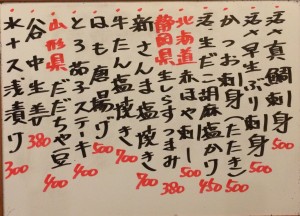 活〆真鯛刺身 500
活〆早生ぶり刺身 500
かつお刺身(たたき) 500
活生だこ胡麻塩かけ 450
北海道赤ほや刺し 500
静岡県生しらすつまみ 380
新さんま塩焼き 700
牛たん塩焼き 700
はも唐揚げ 500
とろ茄子ステーキ 400
山形県だだちゃ豆 400
谷中生姜 380
水ナス浅漬け 300